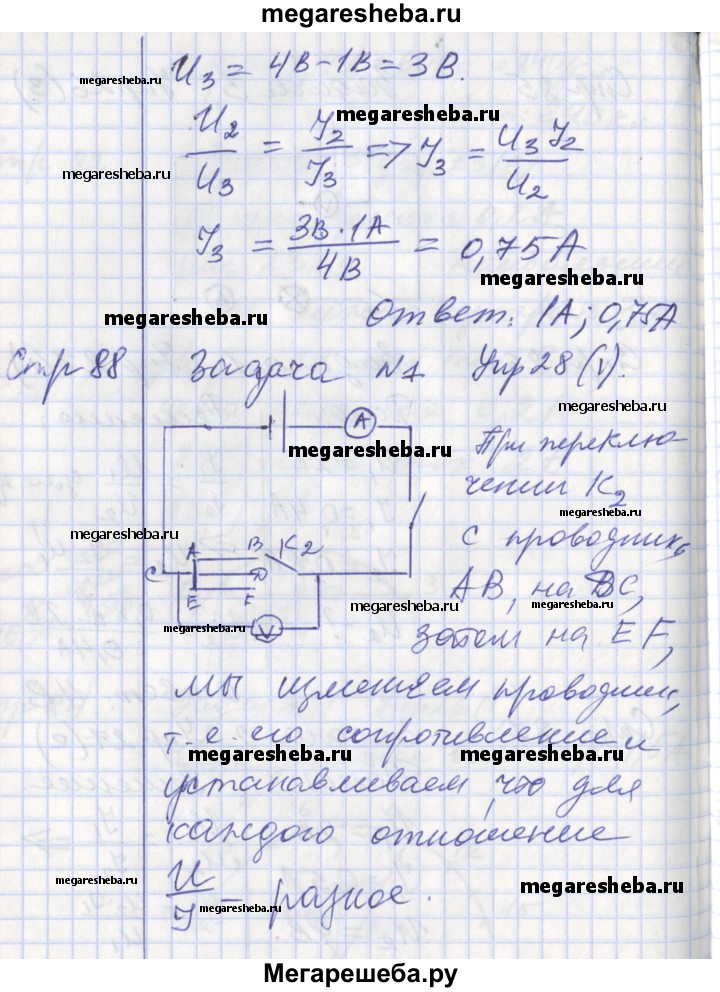 megaresheba.ru
U₃ = 4В - 1В = 3В.
megaresheba.ru
megaresheba.ru
U₂/U₃ = I₂/I₃ => I₃ = U₃I₂/U₂
megaresheba.ru
I₃ = 3В·1А/4В = 0,75А
megaresheba.ru
megaresheba.ru
Ответ: 1А; 0,75А
Стр 88 Задача №1 Упр 28 (1).
megaresheba.ru
A
megaresheba.ru
При переклю-
чении К₂
megaresheba.ru
с проводник
A B K2
C D
E F
megaresheba.ru
АВ, на DC,
megaresheba.ru
megaresheba.ru
V
затем на EF,
мы изменяем проводник,
т. е. его сопротивление и
megaresheba.ru
megaresheba.ru
устанавливаем, что для
каждого отношение
megaresheba.ru
megaresheba.ru
U/I - разное.
megaresheba.ru
Мегарешеба.ру